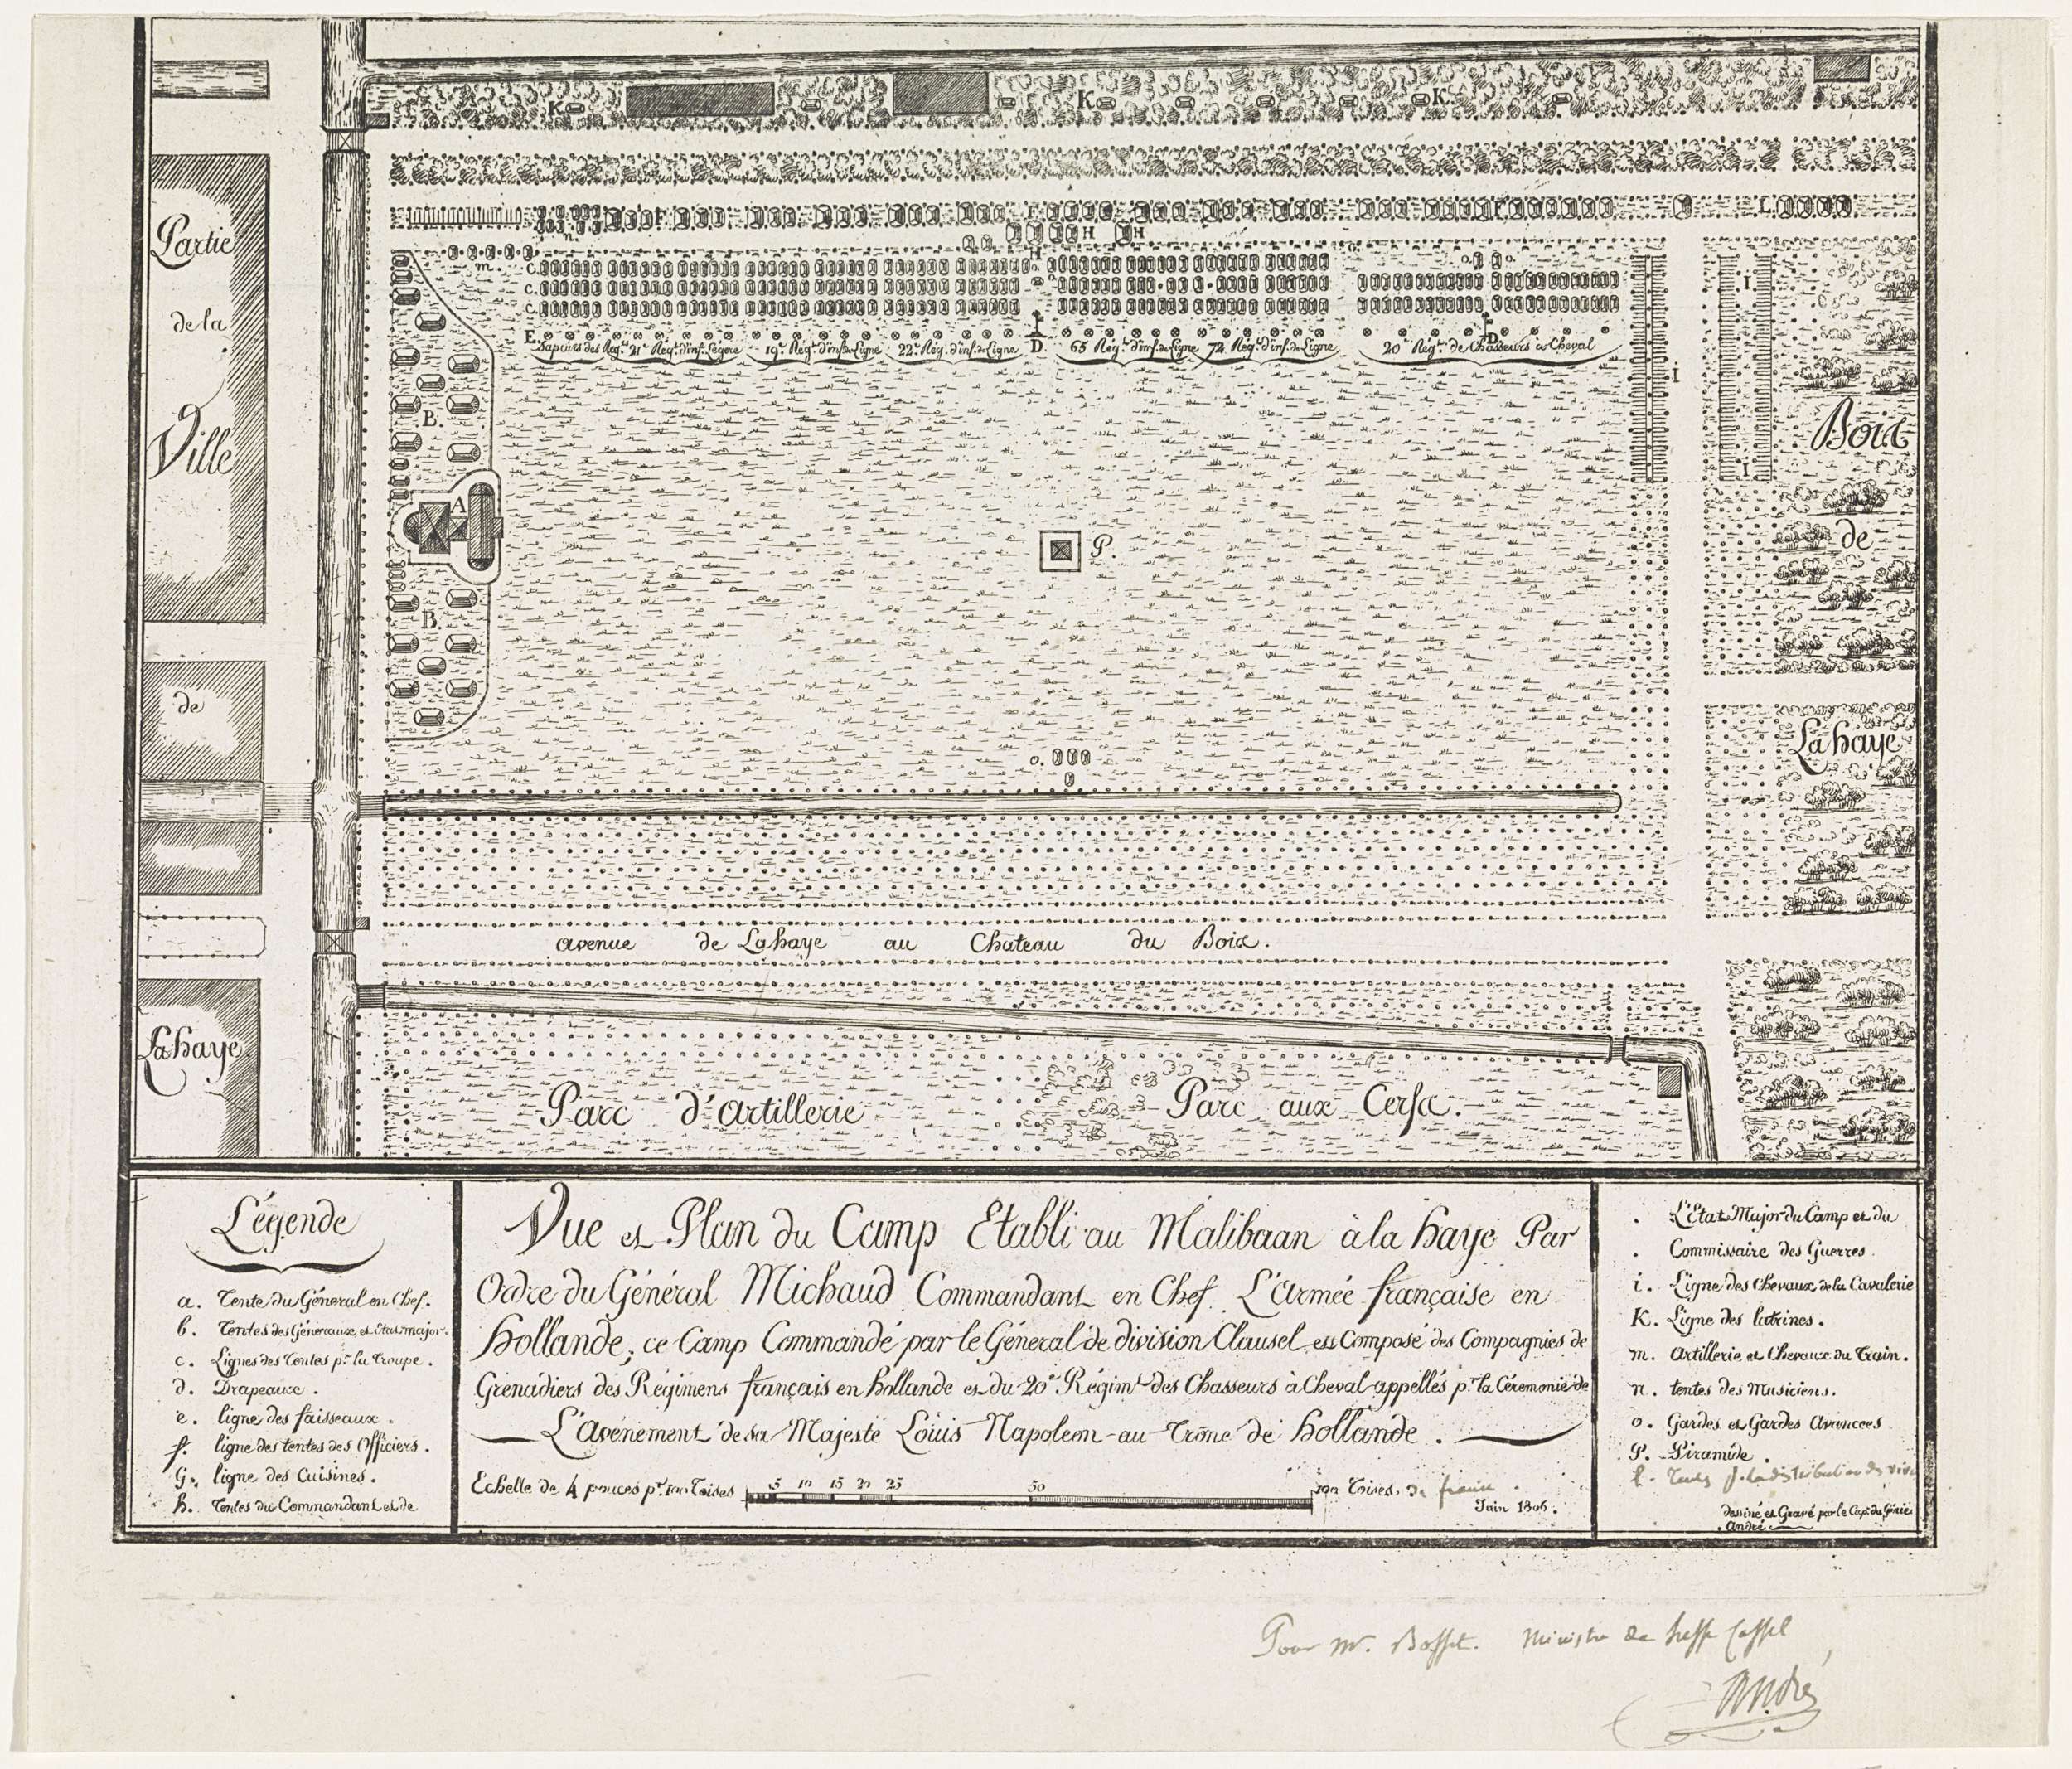 K K K
F F L.
n. H H
m. C. H o. o. o.
C.
C.
I
E. D D
Sapeurs des Reg.ts 21e Reg.t d'inf. Légere 19e Reg.t d'inf. de Ligne 22e Reg. d'inf. de Ligne 65 Reg.t d'inf. de Ligne 72 Reg.t d'inf. de Ligne 20e Reg.t de Chasseurs a Cheval
i
I
B.
A
P.
B.
o.
Partie
de la
Ville
de
Lahaye
Bois
de
Lahaye
avenue de Lahaye au Chateau du Bois.
Parc d'Artillerie
Parc aux Cerfs.
Légende
a. Tente du Général en Chef.
b. Tentes des Généraux et Etat-major.
c. Lignes des Tentes pr. la Troupe.
d. Drapeaux.
e. ligne des faisseaux.
f. ligne des tentes des Officiers.
G. ligne des Cuisines.
h. Tentes du Commandant et de
Vue et Plan du Camp Etabli au Malibaan à la haye Par
Ordre du Général Michaud Commandant en Chef L'Armée française en
Hollande; ce Camp Commandé par le Général de division Clausel est Composé des Compagnies de
Grenadiers des Régimens français en hollande et du 20e Régimt des Chasseurs à Cheval appellés pr. la Céremonie de
L'Avénement de sa Majesté Louis Napoleon au Trône de Hollande.
Echelle de 4 pouces pr. 100 Toises 5 10 15 20 25 50 100 Toises de france.
Juin 1806.
L'Etat Major du Camp et du
Commissaire des Guerres.
i. Ligne des Chevaux de la Cavalerie
K. Ligne des latrines.
m. Artillerie et Chevaux du Train.
n. tentes des Musiciens.
o. Gardes et Gardes Avancées
P. Piramide.
l. Tentes pr. la distribution des vivres
dessiné et Gravé par le Cap. du Génie
André
Pour Mr. Ministre de Hesse Cassel
André